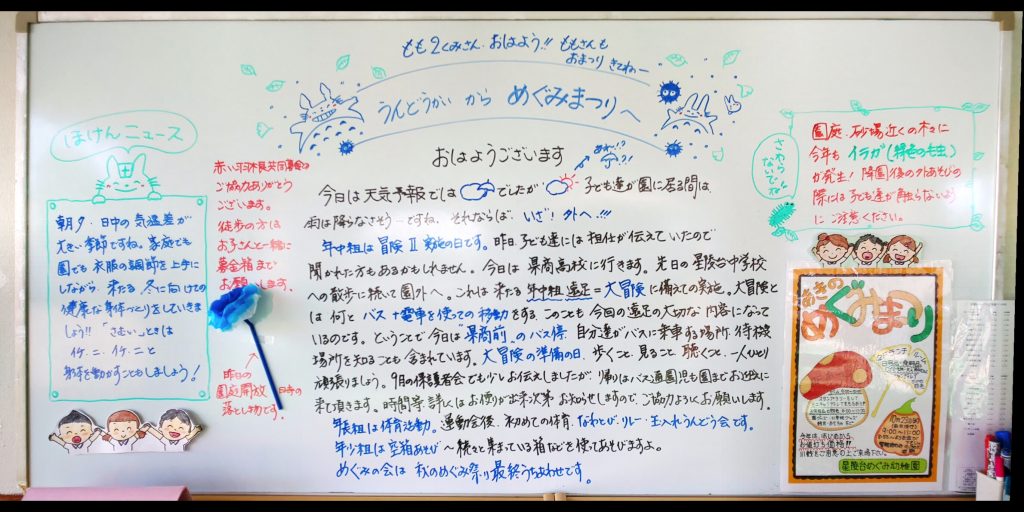 もも2くみさん.おはよう!! ももさんも
おまつり きてねー
うんどうかい から めぐみまつりへ
ほけんニュース
朝夕・日中の気温差が
大きい季節ですね。家庭でも
園でも衣服の調節を上手に
しながら、来たる冬に向けての
健康な身体づくりをしていきま
しょう!! 「さむい」ときは
イチ.ニ.イチ.ニと
身体を動かすこともしましょう!
赤い羽根共同募金の
ご協力ありがとう
ございます。
徒歩の方は
お子さんと一緒に
募金箱まで
お願いします。
昨日の
園庭開放 時の
落とし物です。
おはようございます
今日は天気予報では でしたが 子ども達が園に居る間は、
雨は降らなさそうーですね。それならば、いざ!外へ!!!
年中組は冒険Ⅱ実施の日です。昨日、子ども達には担任が伝えていたので
聞かれた方もあるかもしれません。今日は県商高校に行きます。先日の星陵台中学校
への散歩に続いて園外へ。これは来たる年中組遠足=大冒険に備えての実施。大冒険と
は何とバス+電車を使っての移動をする。このことも今回の遠足の大切な内容になって
いるのです。ということで今日は"県商前"のバス停、自分達がバスに乗車する場所、待機
場所を知ることも含まれています。大冒険の準備の日、歩くこと、見ること、聴くこと、一人ひとり
頑張りましょう。9月の保護者会でも少しお伝えしましたが、帰りはバス通園児も園までお迎えに
来て頂きます。時間等、詳しくはお便りが出来次第お知らせしますので、ご協力よろしくお願いします。
年長組は体育活動。運動会後、初めての体育、なわとび・リレー・玉入れうんどう会です。
年少組は空箱あそび 〜続々と集まっている箱などを使ってあそびますよ。
めぐみの会は秋のめぐみ祭り最終うちあわせです。
さわら
ないでネ!
園庭・砂場近くの木々に
今年もイラガ(緑色の毛虫)
が発生!降園後の外あそびの
際には子ども達が触らないよう
にご注意ください。
あきの
めぐみまつり
9:00〜11:00
星陵台めぐみ幼稚園